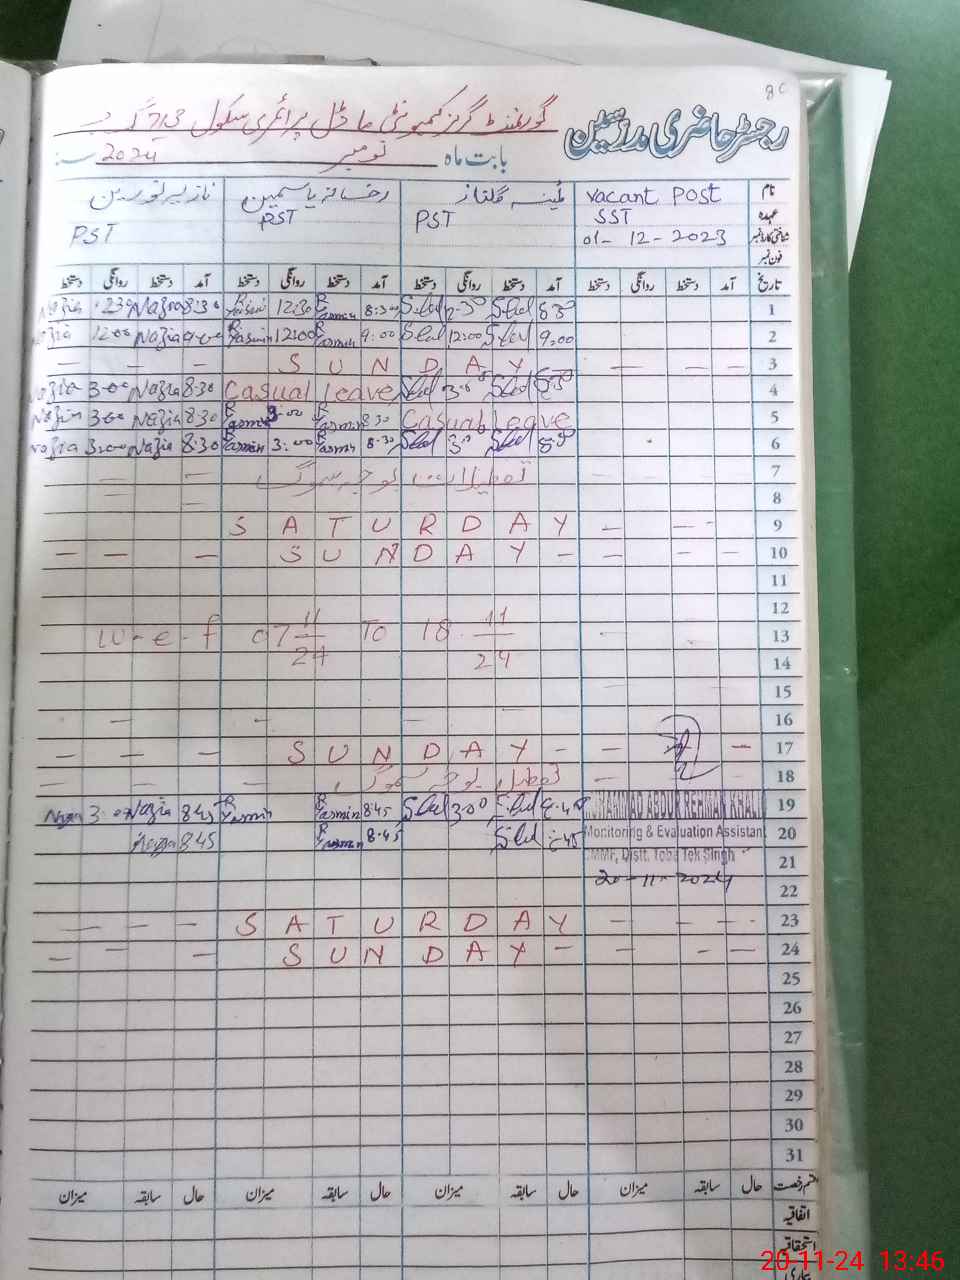 80
رجسٹر حاضری مدرسین
گورنمنٹ گرلز کمیونٹی ماڈل پرائمری سکول 713 گ ب
بابت ماہ نومبر سنہ 2024
نام Vacant Post ثمینہ گلناز رخسانہ یاسمین نازیہ نورین
عہدہ SST PST PST PST
شناختی کارڈ نمبر 01-12-2023
فون نمبر
تاریخ آمد دستخط روانگی دستخط آمد دستخط روانگی دستخط آمد دستخط روانگی دستخط آمد دستخط روانگی دستخط
Nazia Nazia 8:30 Yasmin 12:30 Yasmin 8:30 1
Nazia 12:00 Nazia 9:00 Yasmin 12:00 Yasmin 9:00 12:00 9:00 2
SUNDAY 3
Nazia 3:00 Nazia 8:30 Casual leave 4
Nazia 3:00 Nazia 8:30 Yasmin 3:00 Yasmin 8:30 Casual leave 5
Nazia 3:00 Nazia 8:30 Yasmin 3:00 Yasmin 8:30 6
تعطیلات بوجہ سموگ 7
8
SATURDAY 9
SUNDAY 10
11
12
w-e-f 07 11/24 To 18 11/24 13
14
15
16
SUNDAY 17
تعطیل بوجہ سموگ 18
3:00 Nazia 8:45 Yasmin Yasmin 8:45 3:00 MUHAMMAD ABDUR REHMAN KHALID 19
Nazia 8:45 Yasmin 8:45 Monitoring & Evaluation Assistant 20
CMMF, Distt. Toba Tek Singh 21
20-11-2024 22
SATURDAY 23
SUNDAY 24
25
26
27
28
29
30
31
قسم رخصت حال سابقہ میزان حال سابقہ میزان حال سابقہ میزان حال سابقہ میزان
اتفاقیہ
استحقاقی
بیماری
20-11-24 13:46